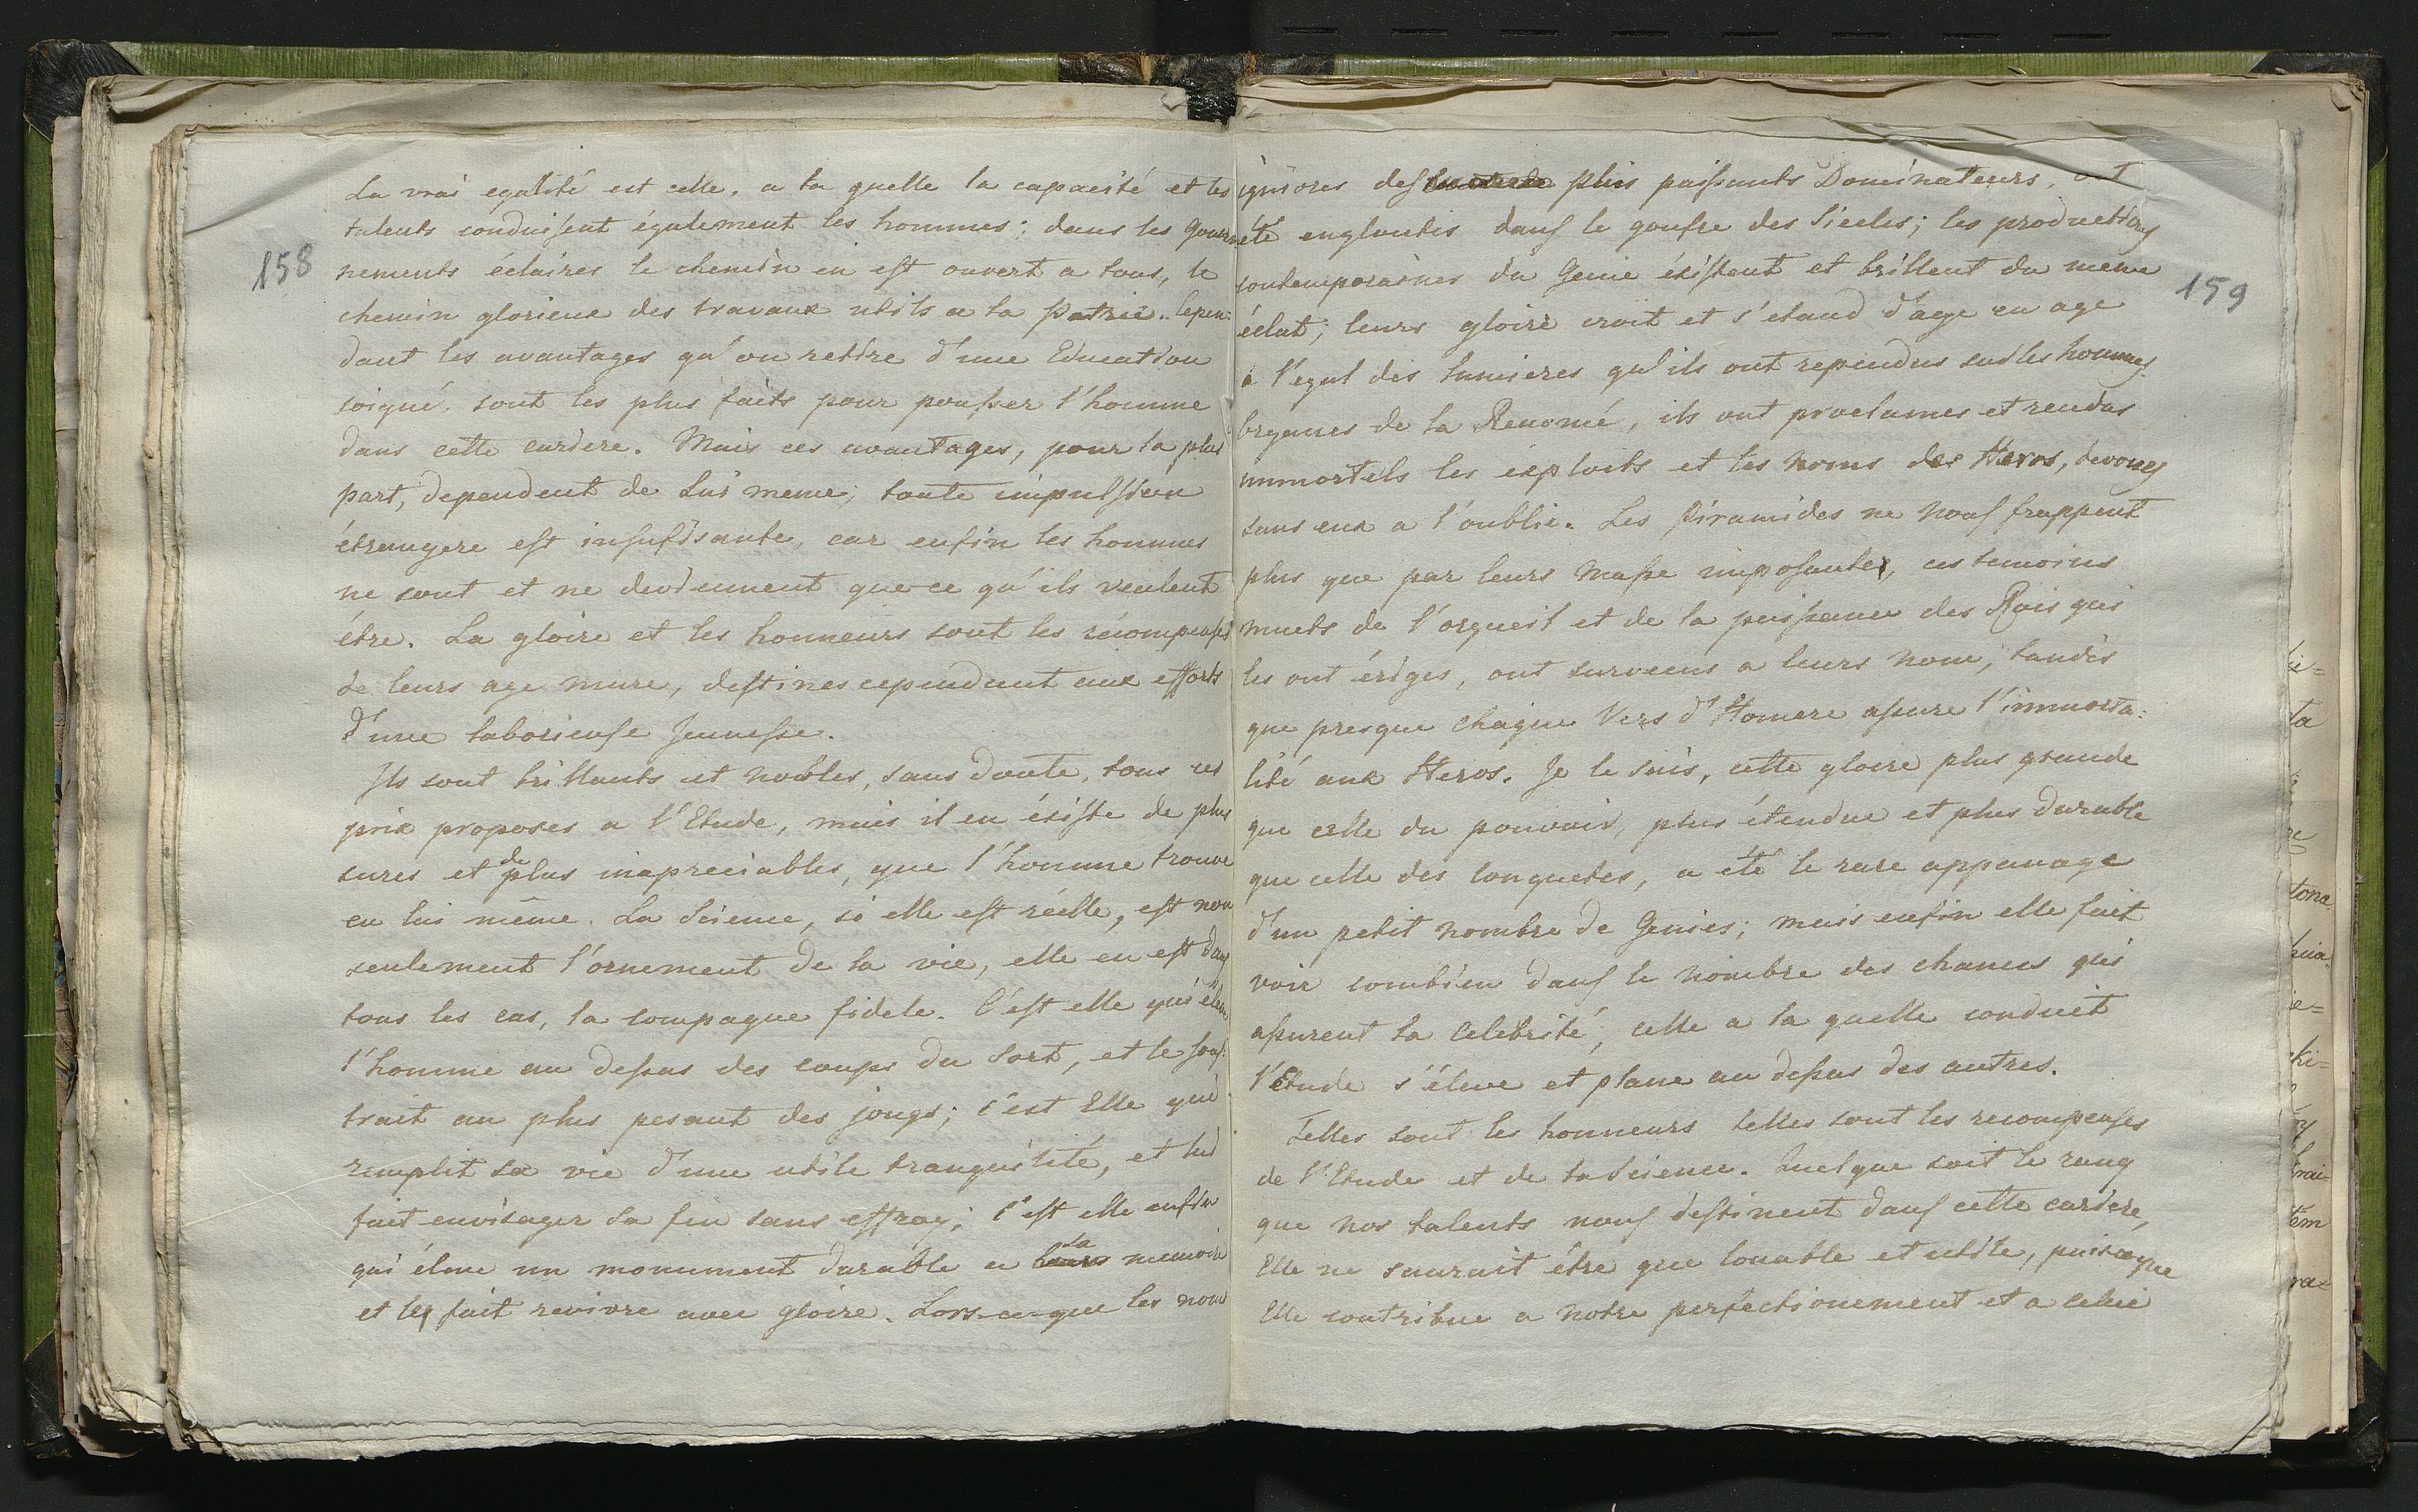 158
La vrai egalité est celle, a la quelle la capacité et les
talents conduisent également les hommes; dans les gouver
nements éclaires le chemin en est ouvert a tous, le
chemin glorieux des travaux utils a la Patrie. Cepen:
dant les avantages qu'on retire d'une Education
soigné, sont les plus faits pour pousser l'homme
dans cette cariere. Mais ces avantages, pour la plus
part, dependent de Lui meme; toute impulsion
étrangere est insufisante, car enfin les hommes
ne sont et ne deviennent que ce qu'ils veulent
étre. La gloire et les honneurs sont les récompenses
de leurs age mure, destines cependant aux efforts
d'une laborieuse Jeunesse.
Ils sont brillants et nobles, sans doute, tous ces
prix proposes a l'Etude, mais il en éxiste de plus
sures et de plus inapreciables, que l'homme trouve
en lui même. La Science, si elle est réelle, est non
seulement l'ornement de la vie, elle en est dans
tous les cas, la compagne fidele. C'est elle qui éleve
l'homme au dessus des coups du Sort, et le sous:
trait au plus pesant des jougs; c'est Elle qui
remplit sa vie d'une utile tranquilité, et lui
fait envisager sa fin sans effroy; c'est elle enfin
qui éleve un monument durable a sa memoire
et le fait revivre avec gloire. Lors-ce-que les nom
159
ignores des plus puissants Dominateurs, ont
été engloutis dans le goufre des Siecles; les productions
contemporaines du Genie éxistent et brillent du meme
éclat; leurs gloire croit et s'etand d'age en age
a l'egal des lumieres qu'ils ont rependus sur les hommes.
Organes de la Renomé, ils ont proclames et rendus
immortels les exploits et les noms des Heros, devoues
sans eux a l'oublie. Les Piramides ne nous frappent
plus que par leurs masse imposante, ces temoins
muets de l'orgueil et de la puissance des Rois qui
les ont ériges, ont survecus a leurs nom, tandis
que presque chaque Vers d'Homere assure l'immorta:
lité aux Heros. Je le sais, cette gloire plus grande
que celle du pouvoir, plus étendue et plus durable
que celle des conquetes, a été le rare appanage
d'un petit nombre de Genies; mais enfin elle fait
voir combien dans le nombre des chances qui
assurent la Celebrité, celle a la quelle conduit
l'Etude s'éleve et plane au dessus des autres.
Telles sont les honneurs telles sont les recompenses
de l'Etude et de la Science. Quelque soit le rang
que nos talents nous destinent dans cette cariere,
Elle ne saurait étre que louable et utile, puisceque
Elle contribue a notre perfectionement et a celui